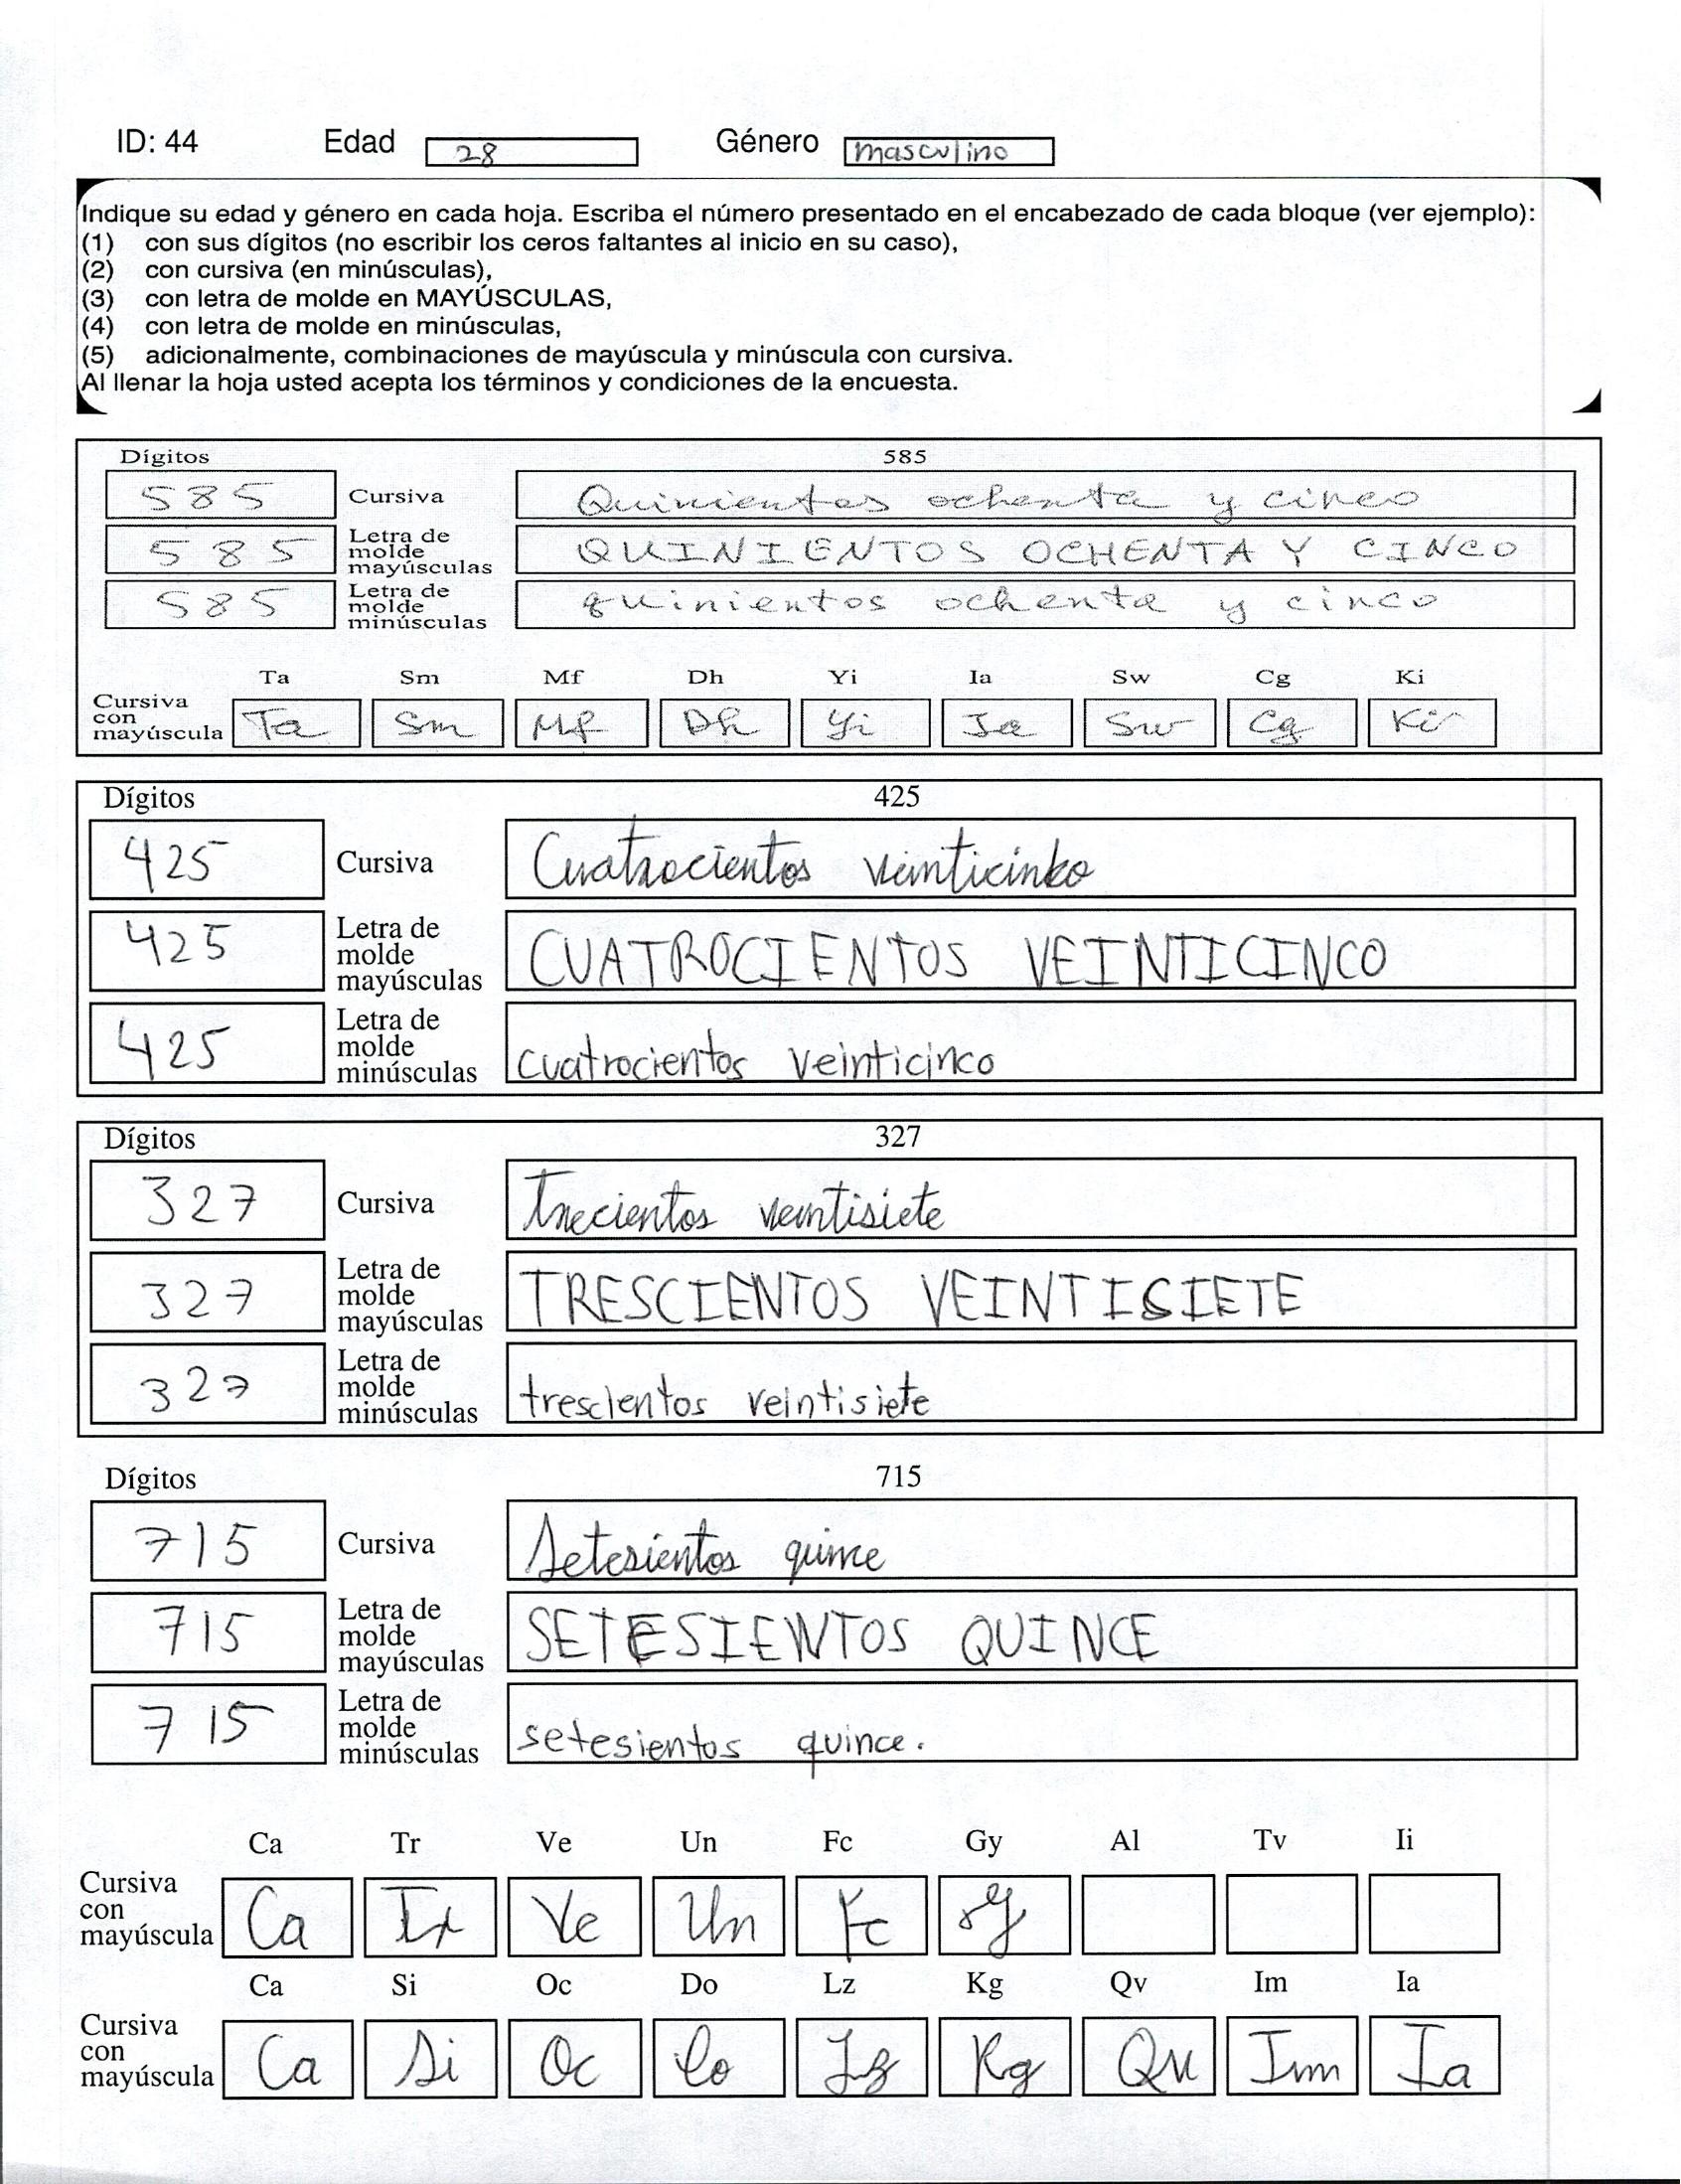 ID: 44 Edad 28 Género masculino
Indique su edad y género en cada hoja. Escriba el número presentado en el encabezado de cada bloque (ver ejemplo):
(1) con sus dígitos (no escribir los ceros faltantes al inicio en su caso),
(2) con cursiva (en minúsculas),
(3) con letra de molde en MAYÚSCULAS,
(4) con letra de molde en minúsculas,
(5) adicionalmente, combinaciones de mayúscula y minúscula con cursiva.
Al llenar la hoja usted acepta los términos y condiciones de la encuesta.
Dígitos 585
585 Cursiva Quinientos ochenta y cinco
585 Letra de molde mayúsculas QUINIENTOS OCHENTA Y CINCO
585 Letra de molde minúsculas quinientos ochenta y cinco
Ta Sm Mf Dh Yi Ia Sw Cg Ki
Cursiva con mayúscula Ta Sm Mf Dh Yi Ia Sw Cg Ki
Dígitos 425
425 Cursiva Cuatrocientos veinticinko
425 Letra de molde mayúsculas CUATROCIENTOS VEINTICINCO
425 Letra de molde minúsculas cuatrocientos veinticinco
Dígitos 327
327 Cursiva Trecientos veintisiete
327 Letra de molde mayúsculas TRESCIENTOS VEINTISIETE
327 Letra de molde minúsculas trescientos veintisiete
Dígitos 715
715 Cursiva Setesientos quince
715 Letra de molde mayúsculas SETESIENTOS QUINCE
715 Letra de molde minúsculas setesientos quince.
Ca Tr Ve Un Fc Gy Al Tv Ii
Cursiva con mayúscula Ca Tr Ve Un Fc Gy
Ca Si Oc Do Lz Kg Qv Im Ia
Cursiva con mayúscula Ca Si Oc Do Lz Kg Qu Im Ia